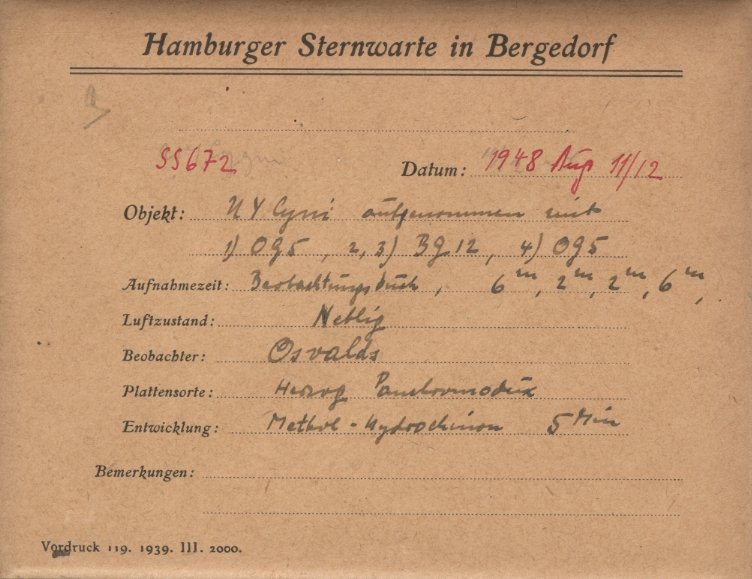 Hamburger Sternwarte in Bergedorf
SS672
Datum: 1948 Aug 11/12
Objekt: Y Cygni aufgenommen mit
1) OG5, 2, 3) BG 12, 4) OG5
Aufnahmezeit: Beobachtungsbuch, 6ᵐ, 2ᵐ, 2ᵐ, 6ᵐ,
Luftzustand: Neblig
Beobachter: Osvalds
Plattensorte: Herzog
Entwicklung: Methol-Hydrochinon 5 Min
Bemerkungen:
Vordruck 119. 1939. III. 2000.